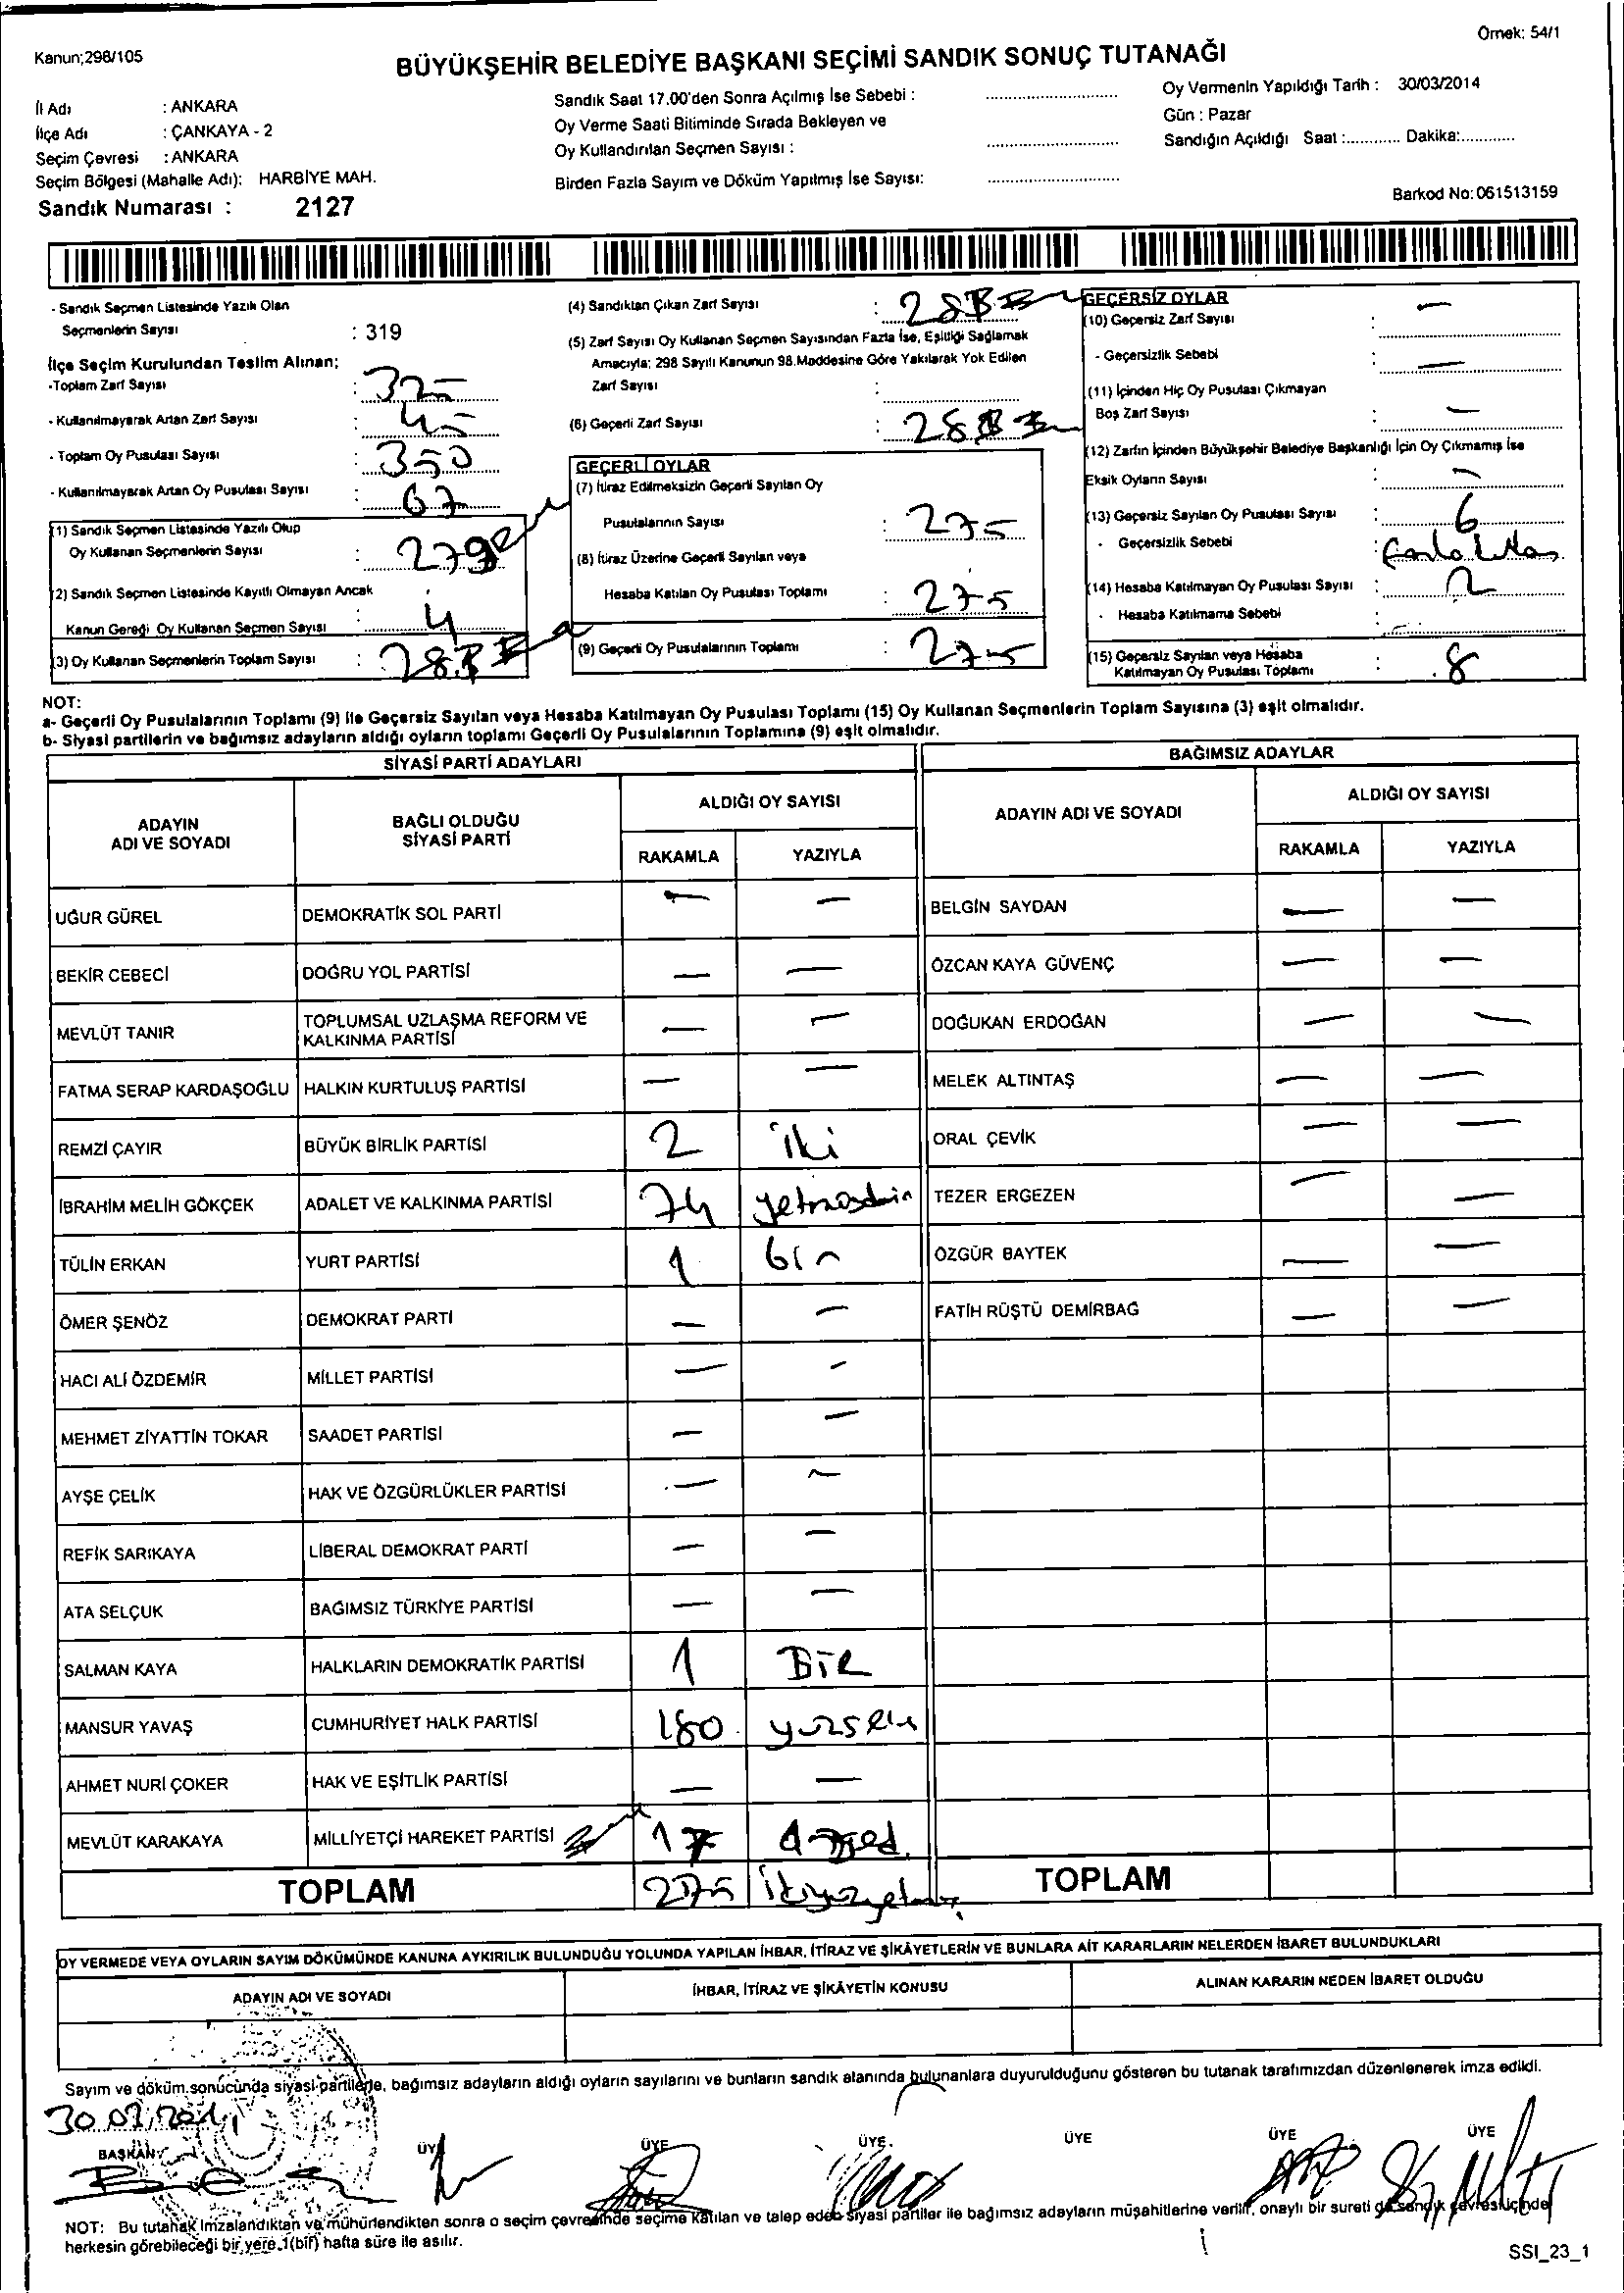 Örnek: 54/1
Kanun;298/105
BÜYÜKŞEHİR BELEDİYE BAŞKANI SEÇİMİ SANDIK SONUÇ TUTANAĞI
İl Adı : ANKARA
İlçe Adı : ÇANKAYA - 2
Seçim Çevresi : ANKARA
Seçim Bölgesi (Mahalle Adı): HARBİYE MAH.
Sandık Numarası : 2127
Sandık Saat 17.00'den Sonra Açılmış İse Sebebi :
Oy Verme Saati Bitiminde Sırada Bekleyen ve
Oy Kullandırılan Seçmen Sayısı :
Birden Fazla Sayım ve Döküm Yapılmış İse Sayısı:
Oy Vermenin Yapıldığı Tarih : 30/03/2014
Gün : Pazar
Sandığın Açıldığı Saat :............ Dakika:............
Barkod No: 061513159
- Sandık Seçmen Listesinde Yazılı Olan
Seçmenlerin Sayısı : 319
İlçe Seçim Kurulundan Teslim Alınan;
-Toplam Zarf Sayısı : 325
- Kullanılmayarak Artan Zarf Sayısı : 45
- Toplam Oy Pusulası Sayısı : 350
- Kullanılmayarak Artan Oy Pusulası Sayısı : 67
(1) Sandık Seçmen Listesinde Yazılı Olup
Oy Kullanan Seçmenlerin Sayısı : 279
(2) Sandık Seçmen Listesinde Kayıtlı Olmayan Ancak
Kanun Gereği Oy Kullanan Seçmen Sayısı : 4
(3) Oy Kullanan Seçmenlerin Toplam Sayısı : 283
(4) Sandıktan Çıkan Zarf Sayısı : 283
(5) Zarf Sayısı Oy Kullanan Seçmen Sayısından Fazla İse, Eşitliği Sağlamak
Amacıyla; 298 Sayılı Kanunun 98.Maddesine Göre Yakılarak Yok Edilen
Zarf Sayısı :
(6) Geçerli Zarf Sayısı : 283
GEÇERLİ OYLAR
(7) İtiraz Edilmeksizin Geçerli Sayılan Oy
Pusulalarının Sayısı : 275
(8) İtiraz Üzerine Geçerli Sayılan veya
Hesaba Katılan Oy Pusulası Toplamı : 275
(9) Geçerli Oy Pusulalarının Toplamı : 275
GEÇERSİZ OYLAR
(10) Geçersiz Zarf Sayısı : —
- Geçersizlik Sebebi : —
(11) İçinden Hiç Oy Pusulası Çıkmayan
Boş Zarf Sayısı : —
(12) Zarfın İçinden Büyükşehir Belediye Başkanlığı İçin Oy Çıkmamış İse
Eksik Oyların Sayısı : —
(13) Geçersiz Sayılan Oy Pusulası Sayısı : 6
- Geçersizlik Sebebi :
(14) Hesaba Katılmayan Oy Pusulası Sayısı : 2
- Hesaba Katılmama Sebebi :
(15) Geçersiz Sayılan veya Hesaba
Katılmayan Oy Pusulası Toplamı : 8
NOT:
a- Geçerli Oy Pusulalarının Toplamı (9) ile Geçersiz Sayılan veya Hesaba Katılmayan Oy Pusulası Toplamı (15) Oy Kullanan Seçmenlerin Toplam Sayısına (3) eşit olmalıdır.
b- Siyasi partilerin ve bağımsız adayların aldığı oyların toplamı Geçerli Oy Pusulalarının Toplamına (9) eşit olmalıdır.
SİYASİ PARTİ ADAYLARI
ADAYIN
ADI VE SOYADI
BAĞLI OLDUĞU
SİYASİ PARTİ
ALDIĞI OY SAYISI
RAKAMLA YAZIYLA
UĞUR GÜREL DEMOKRATİK SOL PARTİ — —
BEKİR CEBECİ DOĞRU YOL PARTİSİ — —
MEVLÜT TANIR TOPLUMSAL UZLAŞMA REFORM VE
KALKINMA PARTİSİ — —
FATMA SERAP KARDAŞOĞLU HALKIN KURTULUŞ PARTİSİ — —
REMZİ ÇAYIR BÜYÜK BİRLİK PARTİSİ 2 iki
İBRAHİM MELİH GÖKÇEK ADALET VE KALKINMA PARTİSİ 74
TÜLİN ERKAN YURT PARTİSİ 1 bir
ÖMER ŞENÖZ DEMOKRAT PARTİ — —
HACI ALİ ÖZDEMİR MİLLET PARTİSİ — —
MEHMET ZİYATTİN TOKAR SAADET PARTİSİ — —
AYŞE ÇELİK HAK VE ÖZGÜRLÜKLER PARTİSİ — —
REFİK SARIKAYA LİBERAL DEMOKRAT PARTİ — —
ATA SELÇUK BAĞIMSIZ TÜRKİYE PARTİSİ — —
SALMAN KAYA HALKLARIN DEMOKRATİK PARTİSİ 1 BİR
MANSUR YAVAŞ CUMHURİYET HALK PARTİSİ 180
AHMET NURİ ÇOKER HAK VE EŞİTLİK PARTİSİ — —
MEVLÜT KARAKAYA MİLLİYETÇİ HAREKET PARTİSİ 17
TOPLAM 275
BAĞIMSIZ ADAYLAR
ADAYIN ADI VE SOYADI
ALDIĞI OY SAYISI
RAKAMLA YAZIYLA
BELGİN SAYDAN — —
ÖZCAN KAYA GÜVENÇ — —
DOĞUKAN ERDOĞAN — —
MELEK ALTINTAŞ — —
ORAL ÇEVİK — —
TEZER ERGEZEN — —
ÖZGÜR BAYTEK — —
FATİH RÜŞTÜ DEMİRBAĞ — —
TOPLAM
OY VERMEDE VEYA OYLARIN SAYIM DÖKÜMÜNDE KANUNA AYKIRILIK BULUNDUĞU YOLUNDA YAPILAN İHBAR, İTİRAZ VE ŞİKÂYETLERİN VE BUNLARA AİT KARARLARIN NELERDEN İBARET BULUNDUKLARI
ADAYIN ADI VE SOYADI İHBAR, İTİRAZ VE ŞİKÂYETİN KONUSU ALINAN KARARIN NEDEN İBARET OLDUĞU
Sayım ve döküm sonucunda siyasi partilerle, bağımsız adayların aldığı oyların sayılarını ve bunların sandık alanında bulunanlara duyurulduğunu gösteren bu tutanak tarafımızdan düzenlenerek imza edildi.
30.03.2014
BAŞKAN ÜYE ÜYE ÜYE ÜYE ÜYE ÜYE
NOT: Bu tutanak imzalandıktan ve mühürlendikten sonra o seçim çevresinde seçime katılan ve talep eden siyasi partiler ile bağımsız adayların müşahitlerine verilir, onaylı bir sureti de sandık çevresi içinde
herkesin görebileceği bir yere 1(bir) hafta süre ile asılır.
SSI_23_1